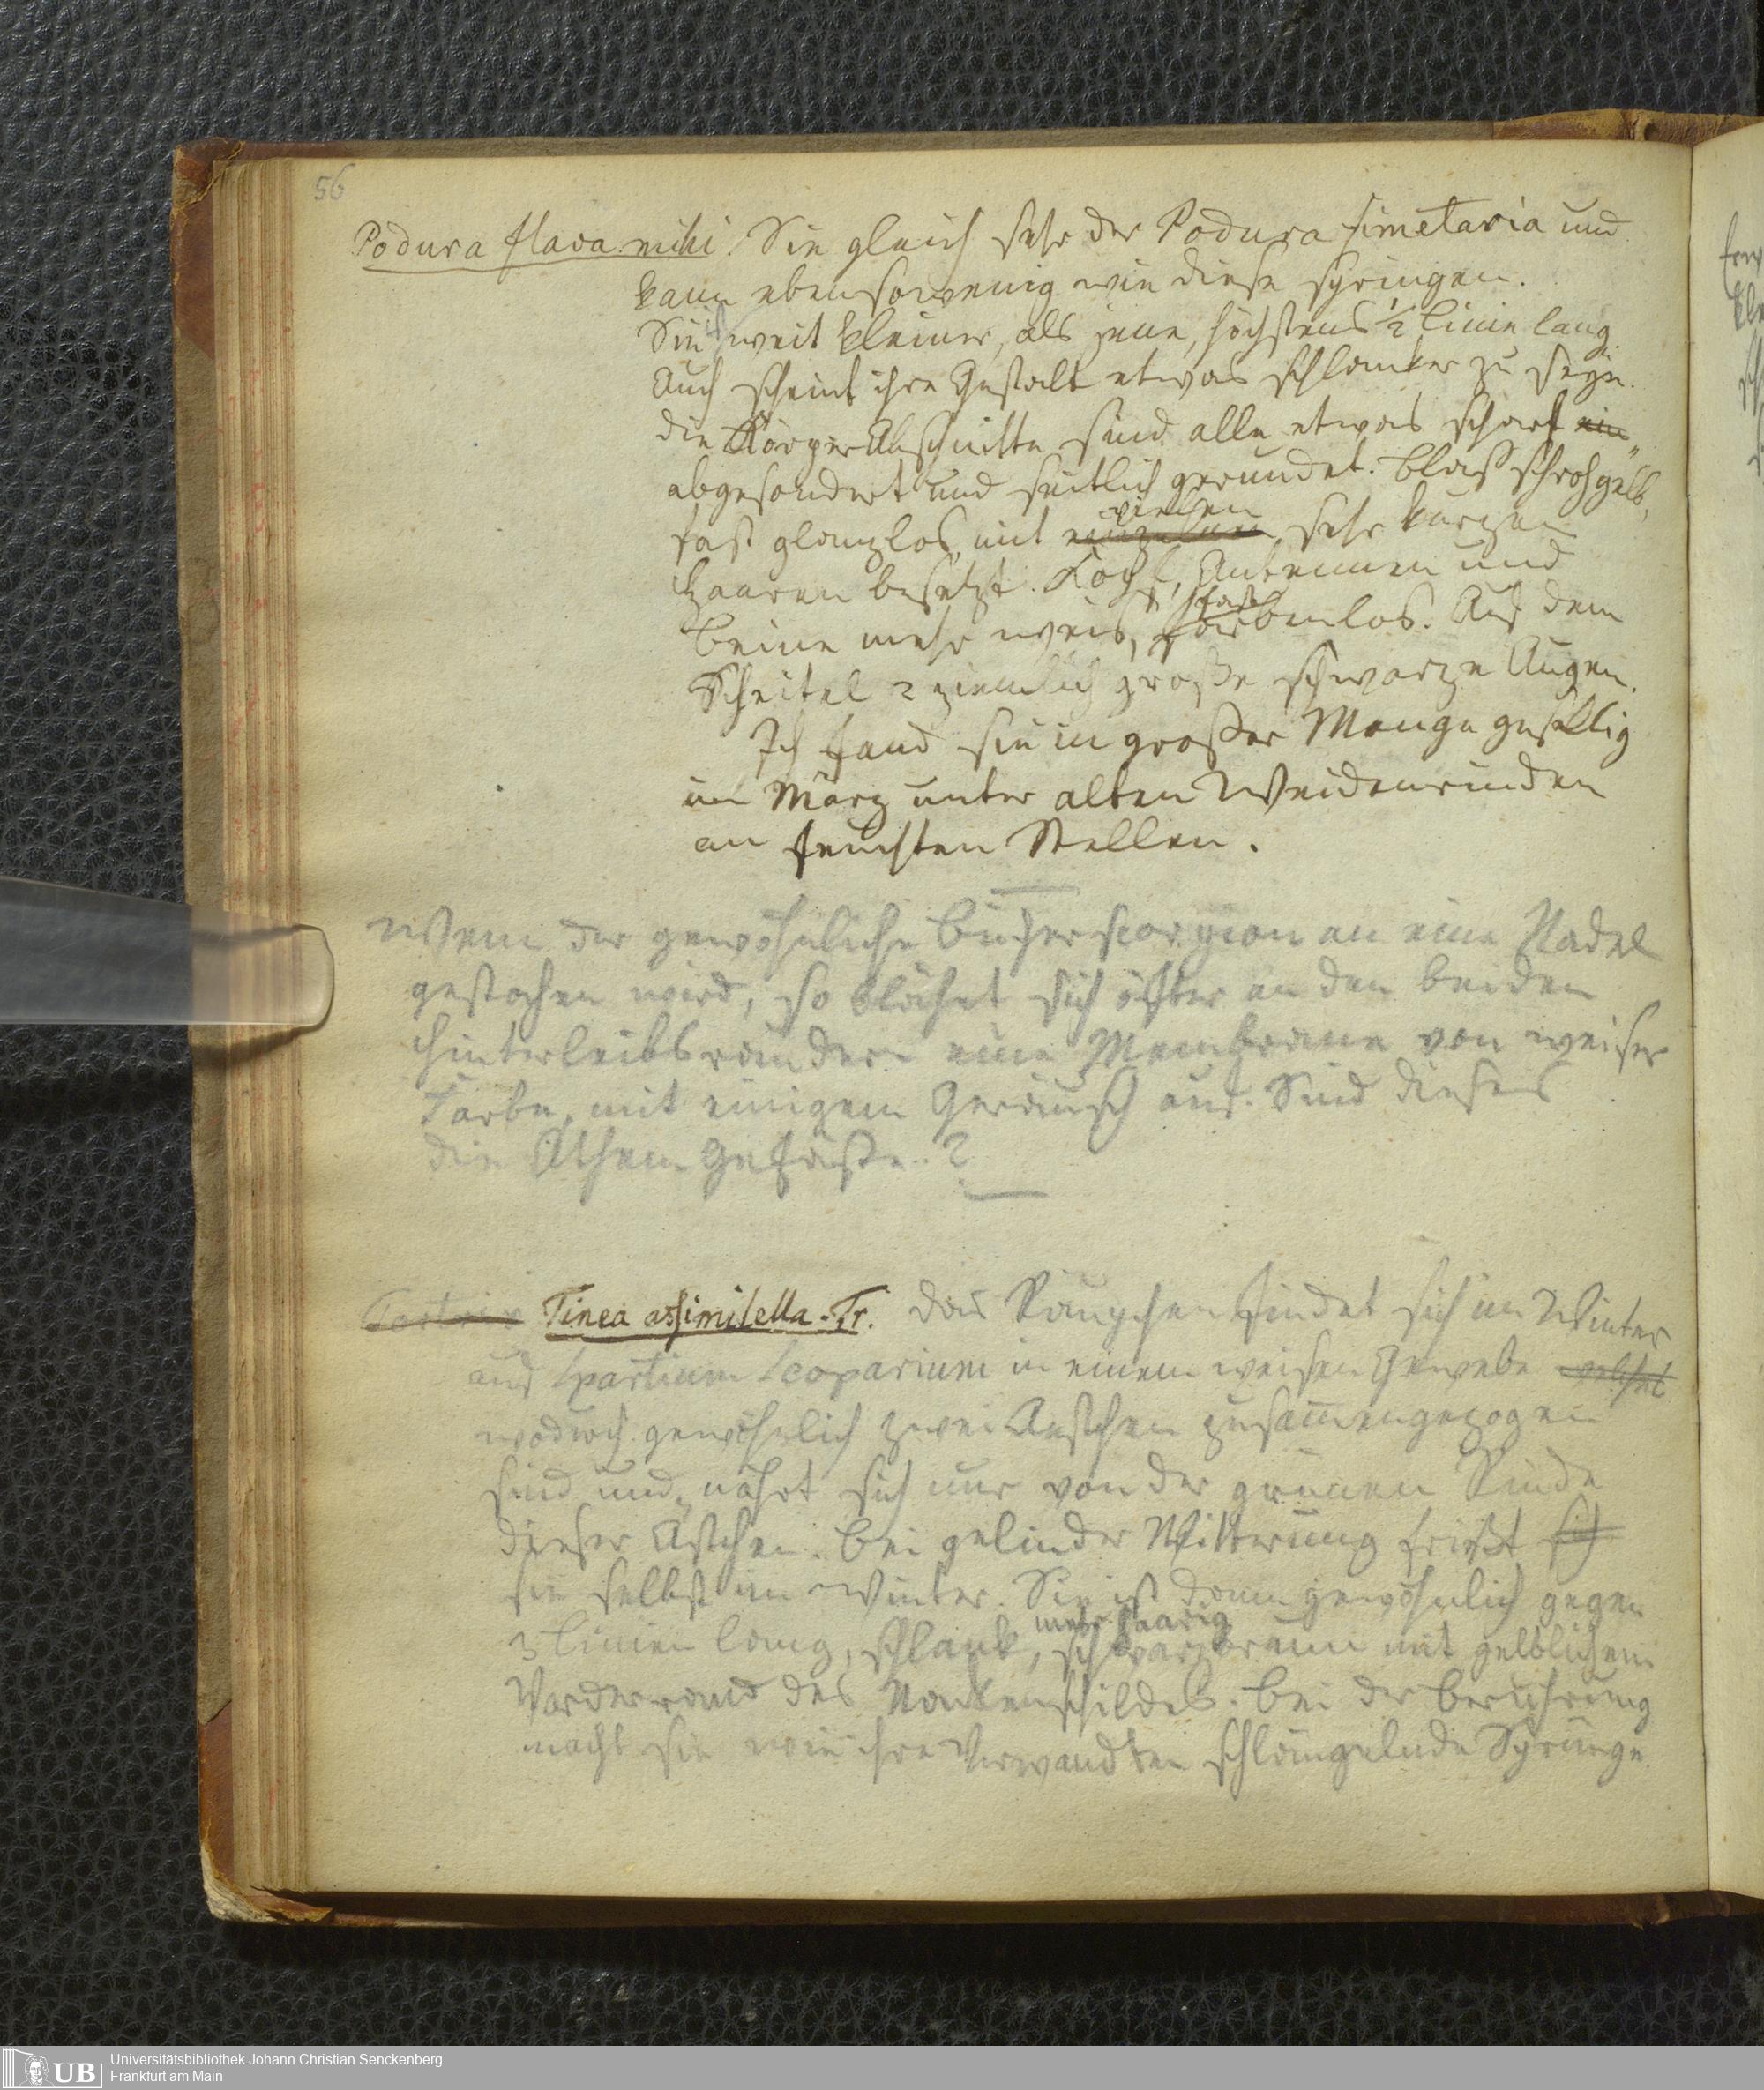 56
Podura flava mihi. Sie gleich sehr der Podura fimetaria und
kann ebensowenig wie diese springen.
Sie ist weit kleiner, als jene, höchstens 1/2 Linie lang.
Auch scheint ihre Gestalt etwas schlanker zu seyn.
die Körper Abschnitte sind alle etwas scharf ein
abgesondert und seitlich gerundet. blaß strohgelb,
vielen
fast glanzlos, mit einzelnen sehr kurzen
Haaren besetzt. Kopf, Antennen und
fast
Beine mehr weis, farbenlos. Auf dem
Scheitel 2 ziemlich große schwarze Augen.
Ich fand sie in großer Menge gesellig
im März unter alten Weidenrinden
an feuchten Stellen.
Wenn der gewöhnliche Bücherscorpion an eine Nadel
gestochen wird, so blähet sich öfter an den beiden
Hinterleibsrändern eine Membrane von weiser
Farbe, mit einigem Geräusch auf. Sind dieses
die Athem Gefäße?
Tortrix Tinea assimilella Tr. das Räupchen findet sich im Winter
auf Spartium Scoparium in einem weisen Gewebe
wodurch gewöhnlich zwei Aestchen zusammengezogen
sind und nährt sich nur von der grünen Rinde
dieser Ästchen. Bei gelinder Witterung frißt sich
sie selbst im Winter. Sie ist dann gewöhnlich gegen
haarig
3 Linien lang, schlank, schwarzbraun mit gelblichem
Vorderrand des Nackenschildes. Bei der Berührung
macht sie wie ihre Verwandten schlängelnde Sprünge.
Universitätsbibliothek Johann Christian Senckenberg
Frankfurt am Main
UB